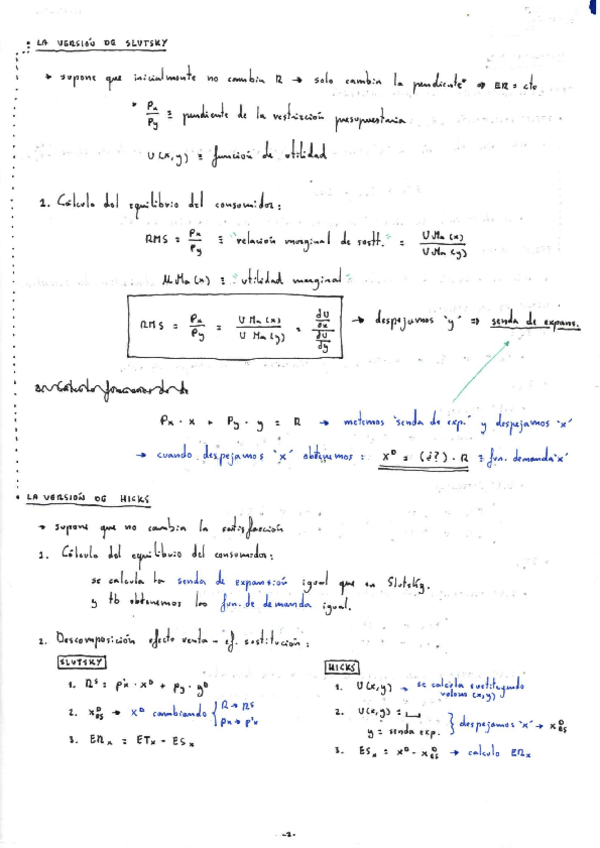 LA VERSIÓN DE SLUTSKY
→ supone que inicialmente no cambia R → solo cambia la pendiente* ⇒ ER = cte
* Px/Py ≡ pendiente de la restricción presupuestaria
U(x,y) ≡ función de utilidad
1. Cálculo del equilibrio del consumidor:
RMS = Px/Py ≡ "relación marginal de sustt." = UMa(x)/UMa(y)
UMa(x) ≡ "utilidad marginal"
RMS = Px/Py = UMa(x)/UMa(y) = (dU/dx)/(dU/dy) → despejamos 'y' ⇒ senda de expans.
Px · x + Py · y = R → metemos 'senda de exp.' y despejamos 'x'
→ cuando despejamos 'x' obtenemos: xᴰ = (¿?) · R ≡ fun. demanda 'x'
LA VERSIÓN DE HICKS
→ supone que no cambia la satisfacción
1. Cálculo del equilibrio del consumidor:
se calcula la senda de expansión igual que en Slutsky.
y tb obtenemos las fun. de demanda igual.
2. Descomposición efecto renta - ef. sustitución:
SLUTSKY
1. Rˢ = p'x · xᴰ + py · yᴰ
2. xᴰES → xᴰ cambiando { R → Rˢ
px → p'x
3. ERx = ETx - ESx
HICKS
1. U(x,y) → se calcula sustituyendo
valores (x,y)
2. U(x,y) = __
y = senda exp. } despejamos 'x' → xᴰES
3. ESx = xᴰ - xᴰES → calculo ERx
-2-